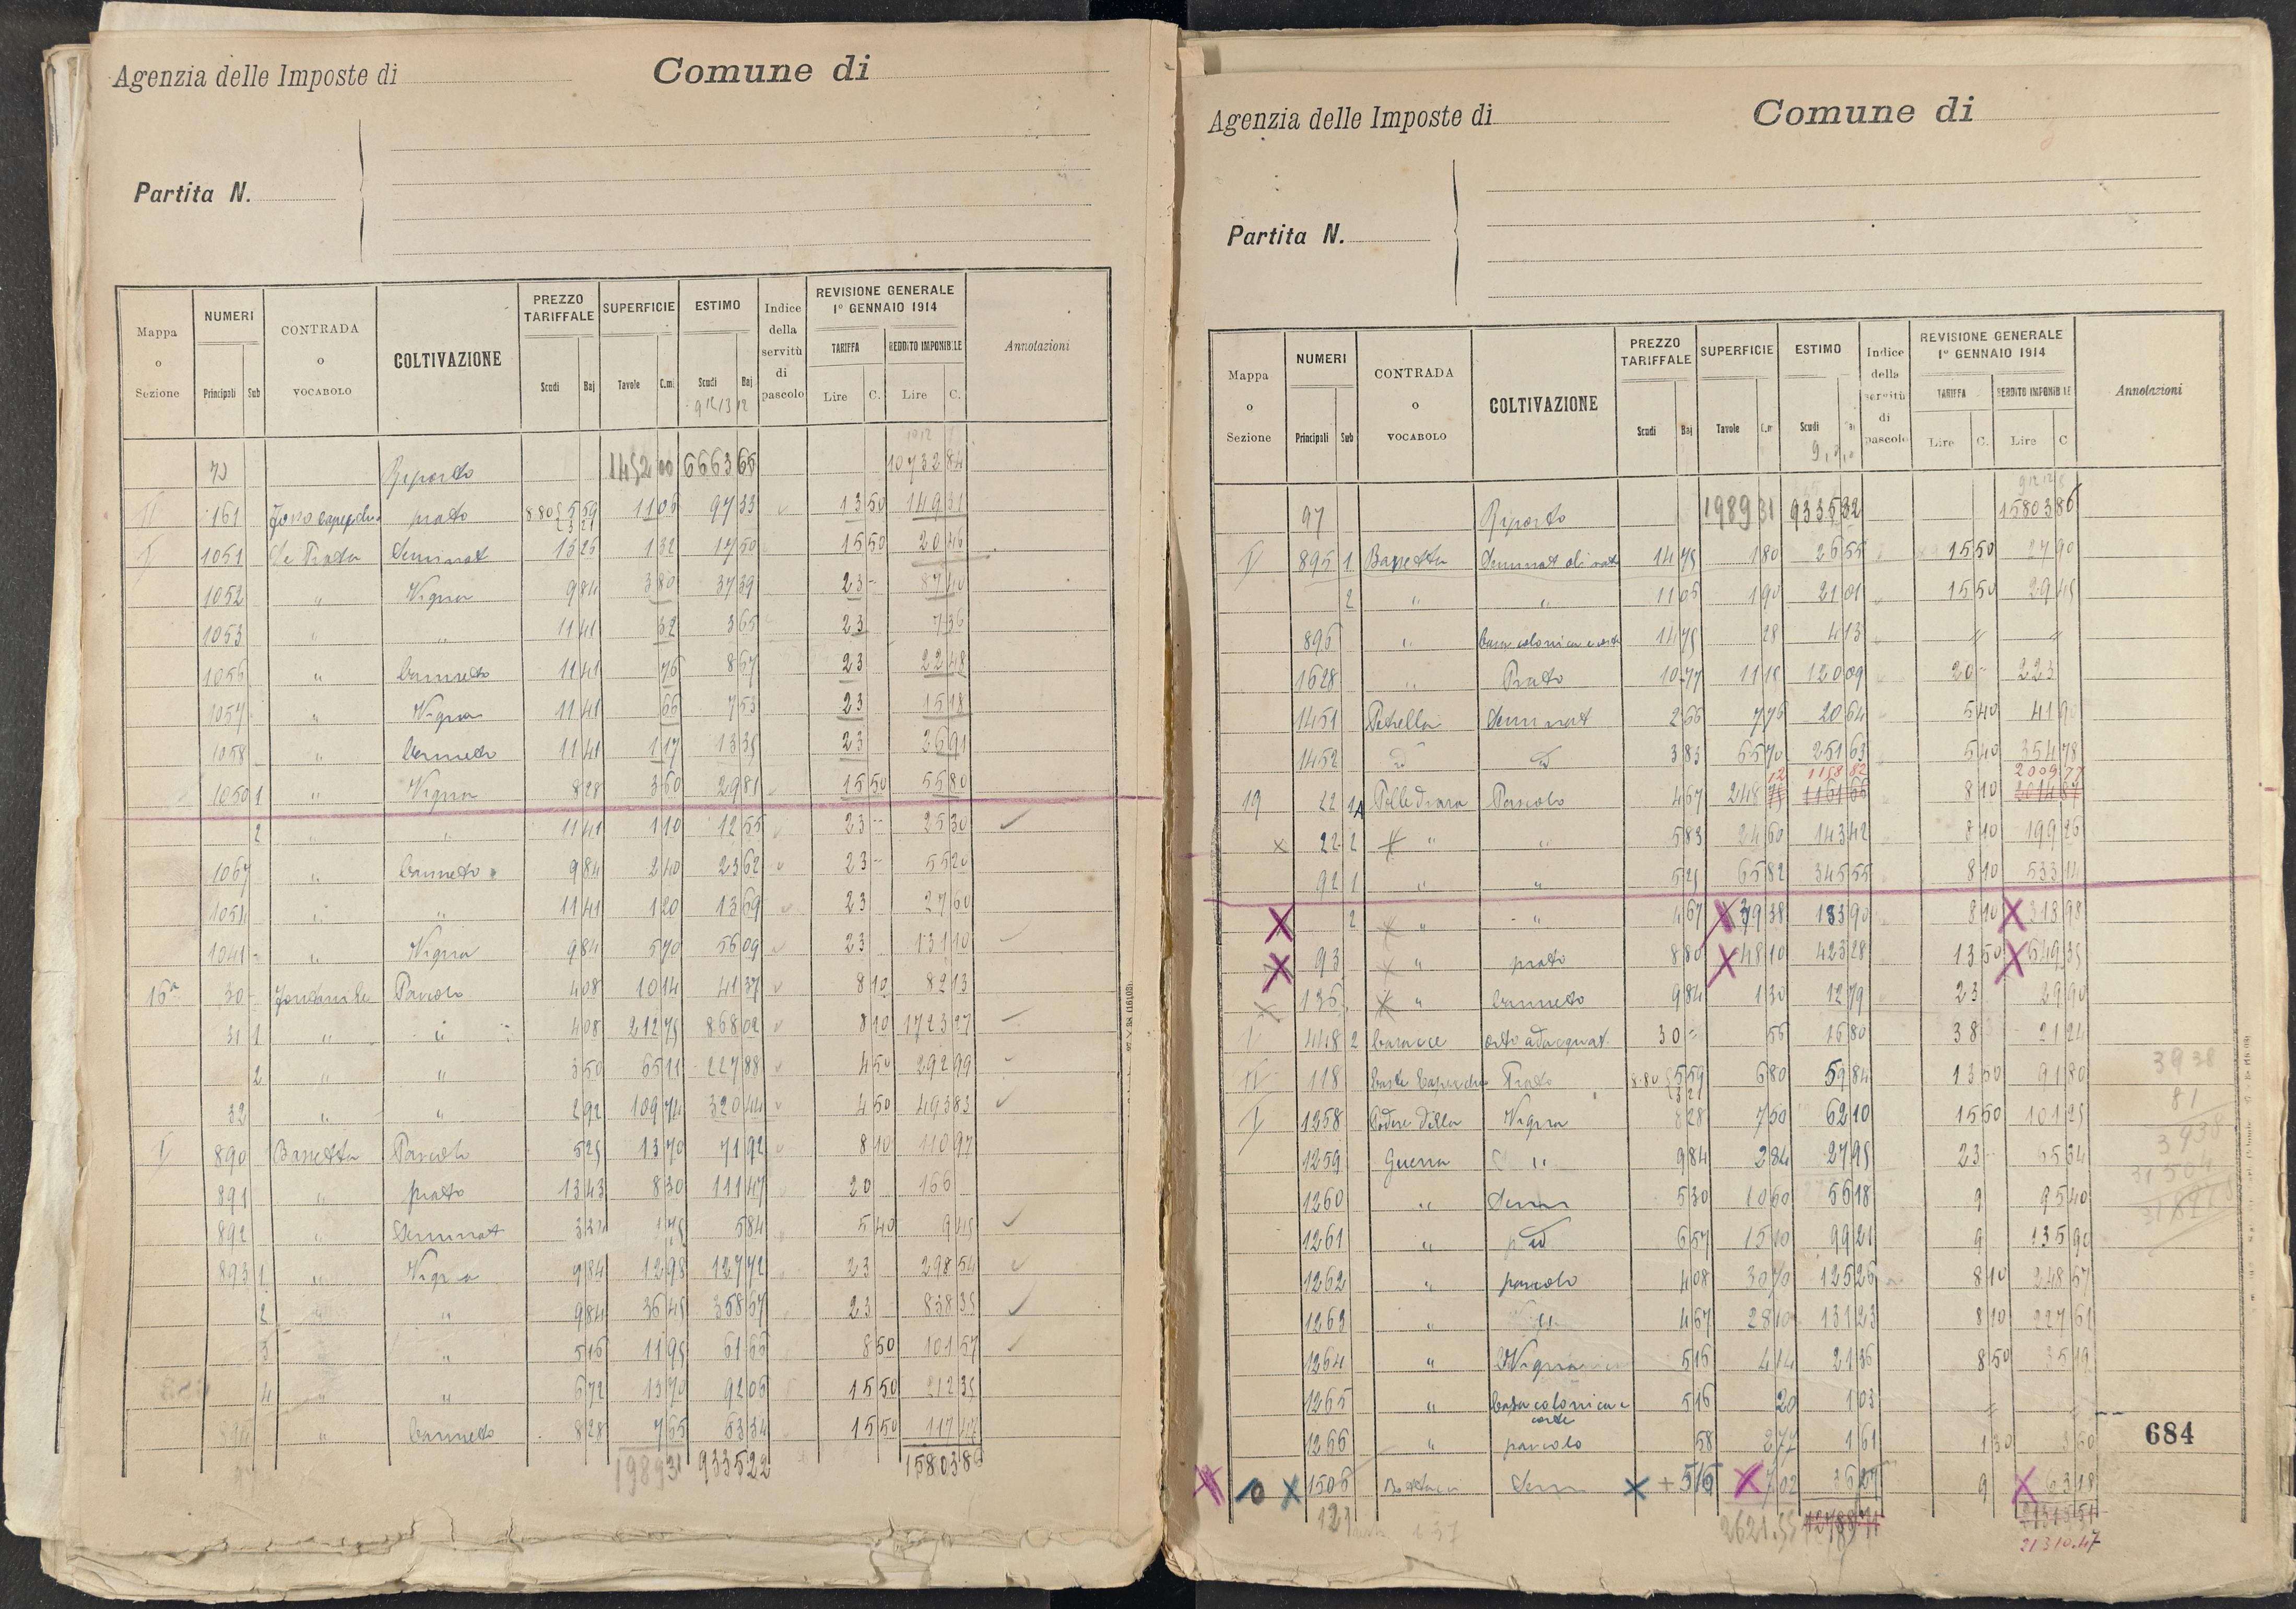 Agenzia delle Imposte di Comune di
Partita N.
Mappa o Sezione NUMERI Principali Sub CONTRADA o VOCABOLO COLTIVAZIONE PREZZO TARIFFALE Scudi Baj SUPERFICIE Tavole C.mi ESTIMO Scudi Baj Indice della servitù di pascolo REVISIONE GENERALE 1° GENNAIO 1914 TARIFFA Lire C. REDDITO IMPONIBILE Lire C. Annotazioni
72 Riporto 1452 00 6663 65 10732 84
II 161 prato 8 80 5 59 3 21 11 05 97 33 13 50 149 31
I 1051 Le Prata Seminat 13 25 1 32 17 50 15 50 20 46
1052 " Vigna 9 84 3 80 37 39 23 - 87 40
1053 " " 11 41 32 3 65 23 7 36
1056 " Canneto 11 41 76 8 67 23 22 48
1057 " Vigna 11 41 66 7 53 23 15 18
1058 " Canneto 11 41 1 17 13 35 23 26 91
1050 1 " Vigna 8 28 3 60 29 81 15 50 55 80
2 " " 11 41 1 10 12 55 23 - 25 30
1067 " Canneto 9 84 2 40 23 62 23 - 55 20
1054 " " 11 41 1 20 13 69 23 27 60
1041 " Vigna 9 84 5 70 56 09 23 131 10
15a 30 Pascolo 4 08 10 14 41 37 8 10 82 13
31 1 " " 4 08 212 75 868 02 8 10 1723 27
2 " " 3 50 65 11 227 88 4 50 292 99
32 " " 2 92 109 74 320 44 4 50 493 83
I 890 Pascolo 5 25 13 70 71 92 8 10 110 97
891 " prato 13 43 8 30 111 47 20 166
892 " Seminat 1 75 5 84 5 40 9 45
893 1 " Vigna 9 84 12 98 127 72 23 298 54
2 " " 9 84 36 45 358 67 23 838 35
3 " " 5 16 11 95 61 66 8 50 101 57
4 " " 6 72 13 70 92 06 15 50 212 35
894 " Canneto 8 28 7 65 63 34 15 50 117 47
1989 31 9335 22 15803 86
Agenzia delle Imposte di Comune di
Partita N.
Mappa o Sezione NUMERI Principali Sub CONTRADA o VOCABOLO COLTIVAZIONE PREZZO TARIFFALE Scudi Baj SUPERFICIE Tavole C.mi ESTIMO Scudi Baj Indice della servitù di pascolo REVISIONE GENERALE 1° GENNAIO 1914 TARIFFA Lire C. REDDITO IMPONIBILE Lire C Annotazioni
97 Riporto 1989 31 9335 22 15803 86
V 895 1 Seminat olivat 14 75 1 80 26 55 15 50 27 90
2 " " 11 05 1 90 21 01 15 50 29 45
896 " Casa colonica e corte 14 75 28 4 13 " "
1628 " Prato 10 77 11 15 120 09 20 - 223
1451 Petrella Seminat 2 66 7 76 20 64 5 40 41 90
1452 id id 3 83 65 70 251 63 5 40 354 78
12 1158 82 2009 77
19 22 1A Polledrara Pascolo 4 67 248 1161 66 8 10
x 22 2 " " 5 83 24 60 143 42 8 10 199 26
92 1 " " 5 25 65 82 345 55 8 10 533 14
2 " " 4 67 39 38 183 90 8 10 318 98
93 " prato 8 80 48 10 423 28 13 50 649 35
136 " Canneto 9 84 1 30 12 79 23 29 90
448 2 orto adacquat. 30 = 56 16 80 38 21 24
II 118 Prato 8.80 5 59 3 21 6 80 59 84 13 50 91 80
I 1258 Podere della Vigna 8 28 7 50 62 10 15 50 101 25
1259 Guerra " 9 84 2 84 27 95 23 65 34
1260 " Semin 5 30 10 60 56 18 9 95 40
1261 " id 6 57 15 10 99 21 9 135 90
1262 " pascolo 4 08 30 70 125 26 8 10 248 67
1263 " " 4 67 28 10 131 23 8 10 227 61
1264 " Vigna 5 16 4 14 21 36 8 50 35 19
1265 " Casa colonica e corte 5 16 20 1 03 " "
1266 " pascolo 58 2 77 1 61 1 30 3 60
684
1506 Semin 5 16 7 02 9 63 18
123 637 2621.55
21310.47
3938
81
3938